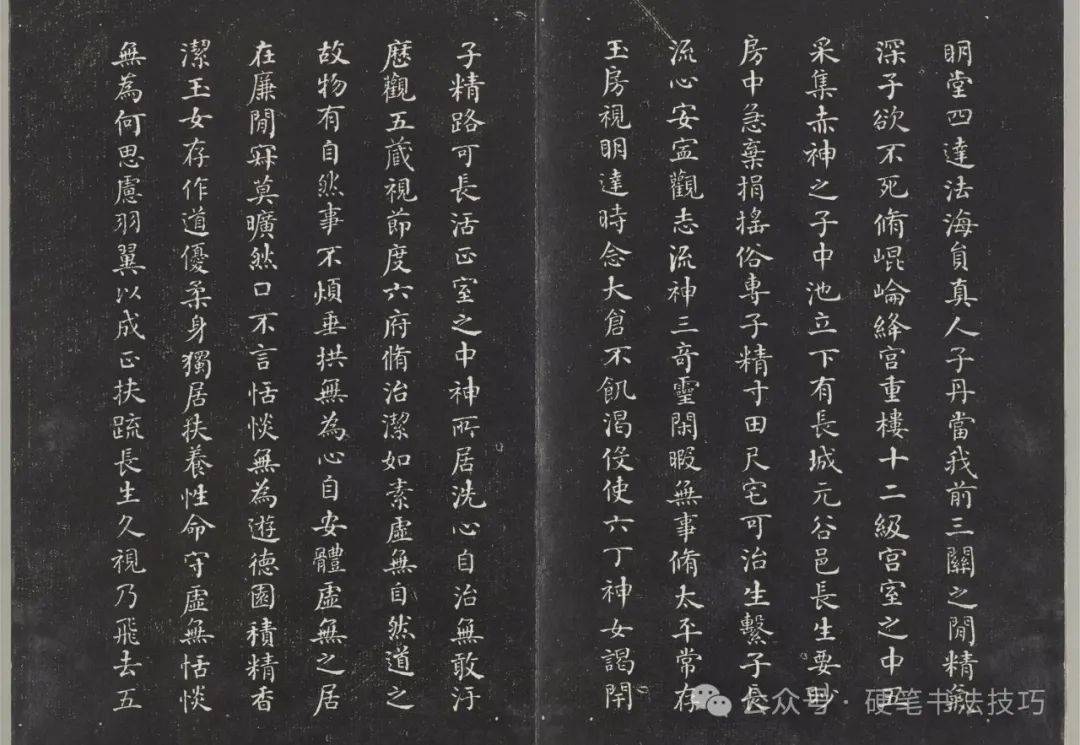 明堂四達法海負真人子丹當我前三關之閒精氣
深子欲不死脩崐崘絳宮重樓十二級宮室之中五
采集赤神之子中池立下有長城元谷邑長生要眇
房中急棄捐搖俗專子精寸田尺宅可治生繫子長
流心安寍觀志流神三奇靈閑暇無事脩太平常存
玉房視明達時念大倉不飢渴役使六丁神女謁閇
子精路可長活正室之中神所居洗心自治無敢汙
歷觀五藏視節度六府脩治潔如素虛無自然道之
故物有自然事不煩垂拱無為心自安體虛無之居
在廉閒寂莫曠然口不言恬惔無為遊德園積精香
潔玉女存作道優柔身獨居扶養性命守虛無恬惔
無為何思慮羽翼以成正扶疏長生久視乃飛去五
公众号·硬笔书法技巧